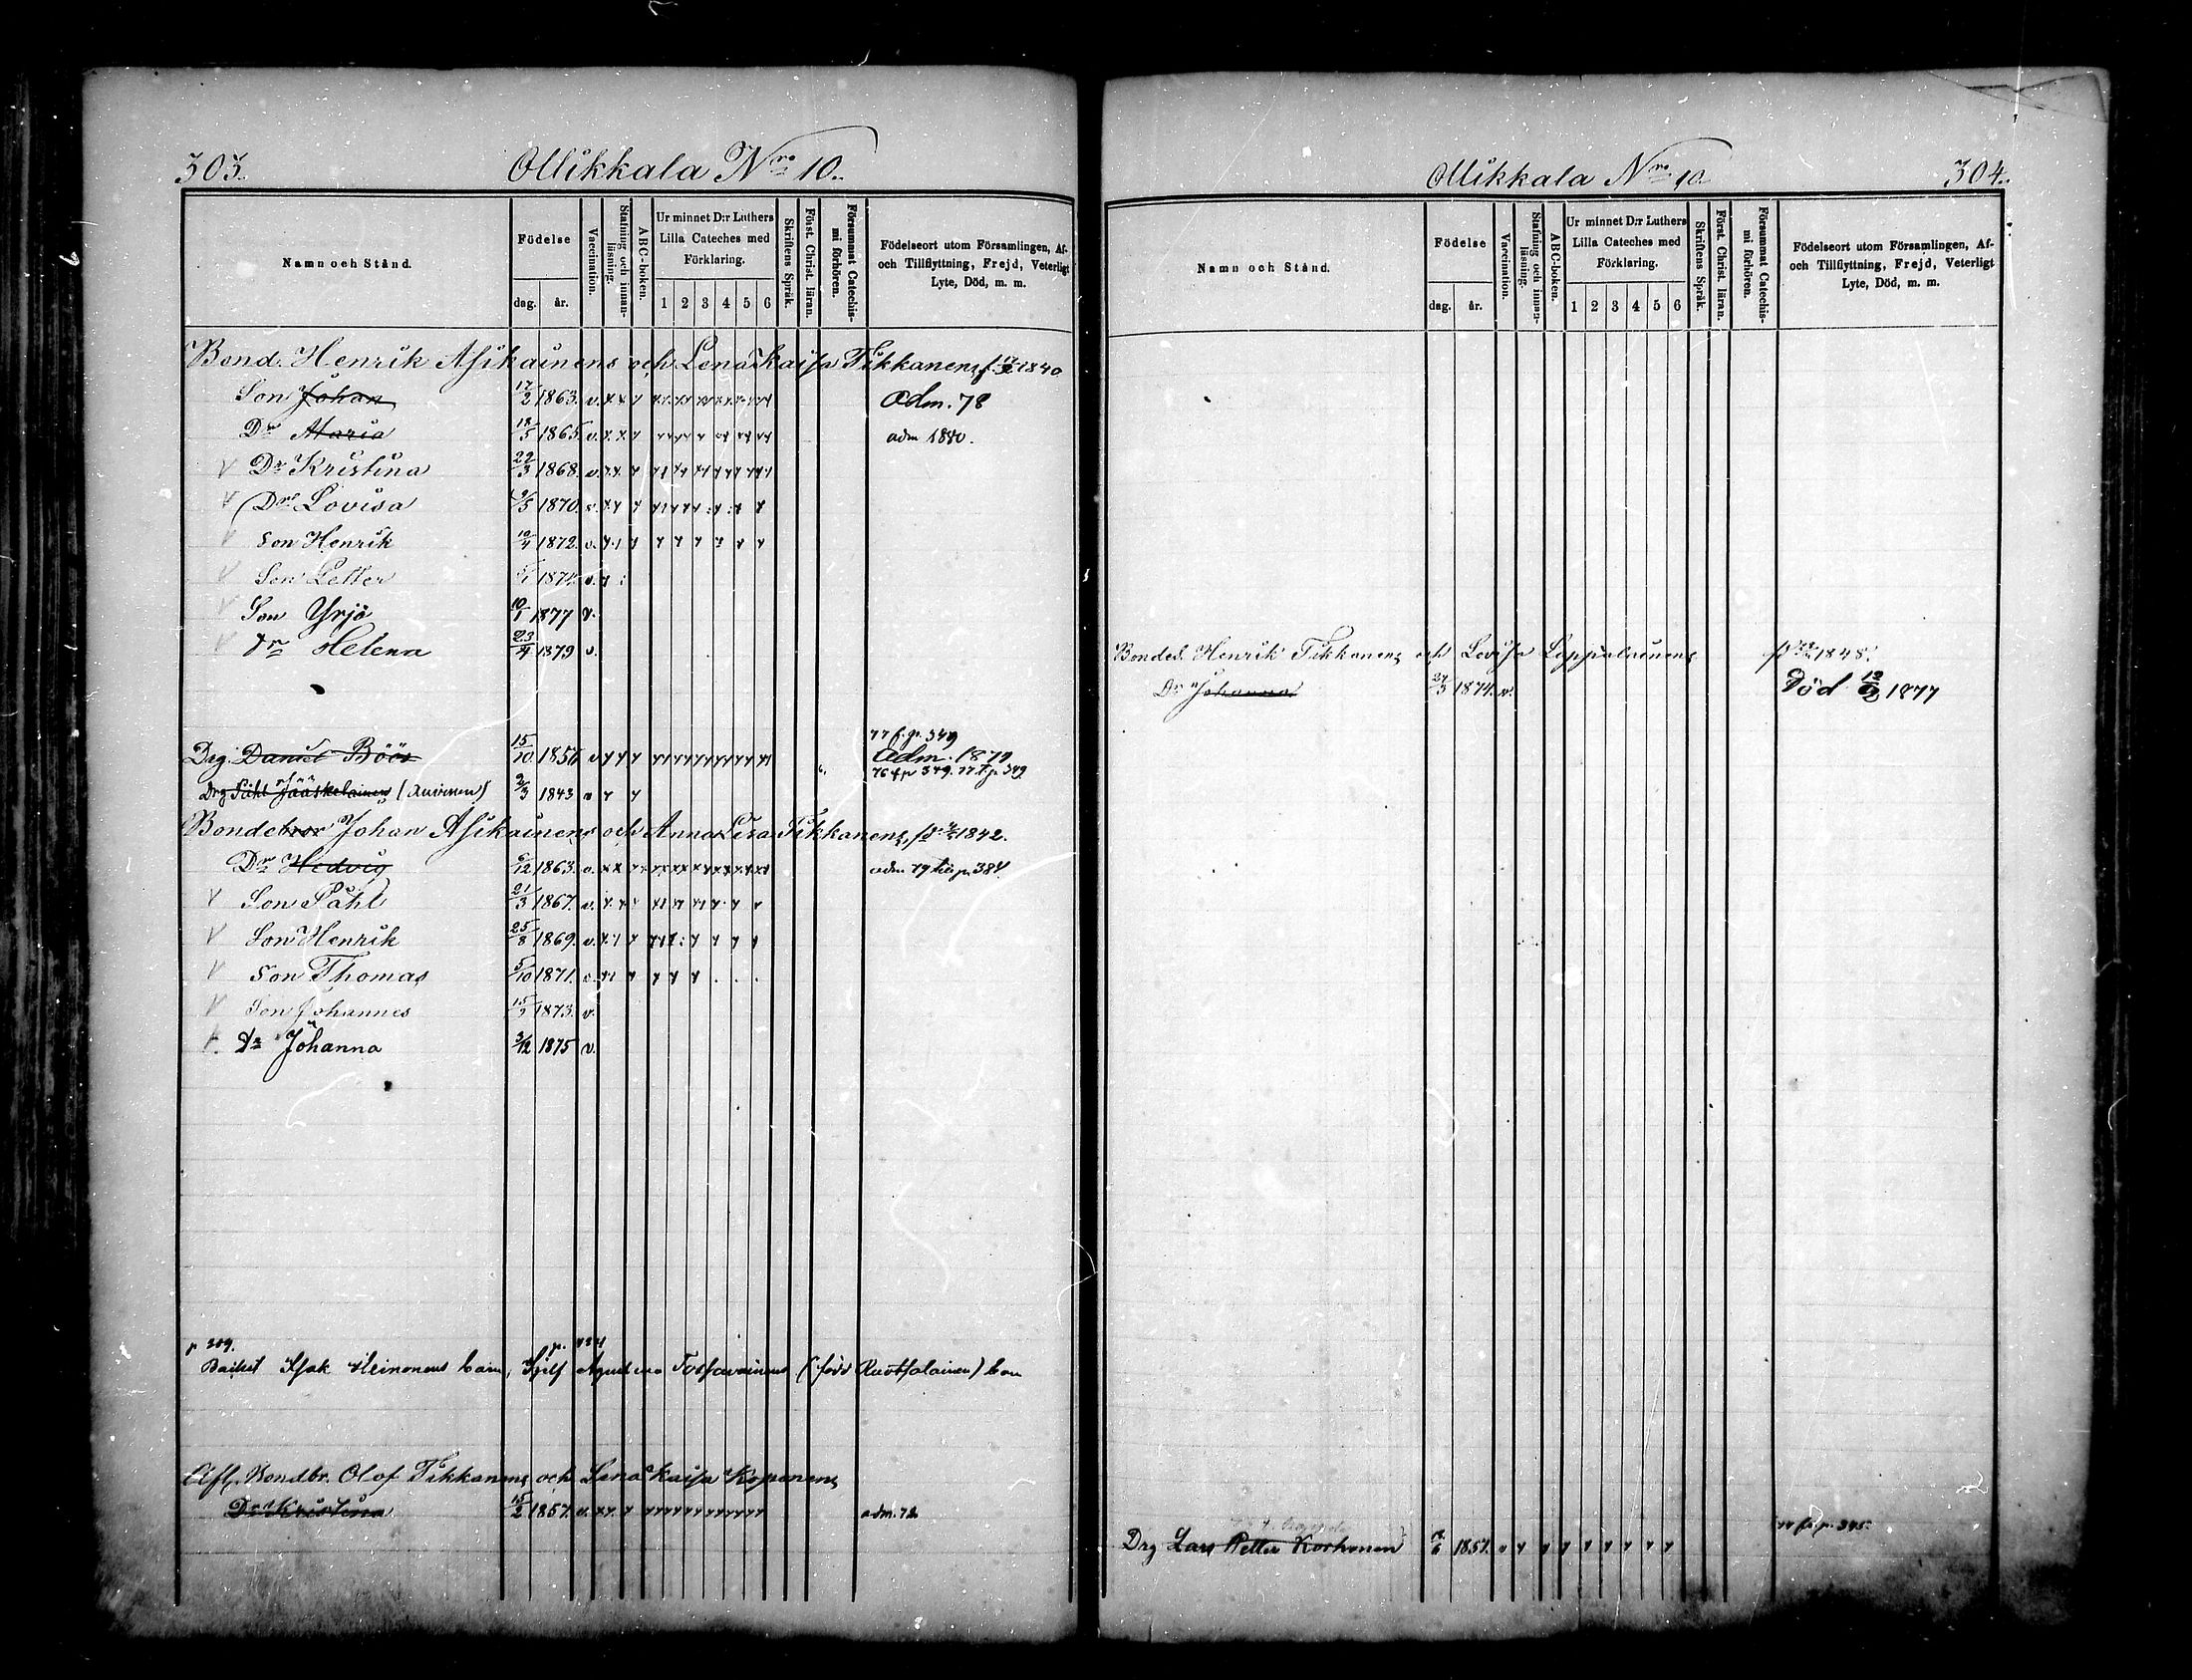 303.
Ollikkala Nro 10.
Namn och Stånd.
Födelse
dag. år.
Vaccination.
Stafning och innanläsning.
ABC-boken.
Ur minnet D:r Luthers Lilla Cateches med Förklaring.
1 2 3 4 5 6
Skriftens Språk.
Först. Christ. läran.
Försummat Catechismi förhören.
Födelseort utom Församlingen, Af- och Tillflyttning, Frejd, Veterligt Lyte, Död, m. m.
Bond. Henrik Asikainens och Lena Kaisa Tikkanens f. 1840
Son Johan 17/2 1863. v. Adm. 78
Dr Maria 18/5 1865. v. adm 1880.
Dr Kristina 22/3 1868. v.
Dr Lovisa 9/5 1870. v.
Son Henrik 10/4 1872. v.
Son Petter 5/1 1874. v.
Son Yrjö 10/1 1877 v.
Dr Helena 23/4 1879 v.
77 f. p. 349
Drg Daniel Böös 15/10 1856 v Adm. 1879
76 f p 349. 77 t p 349
Drg Påhl Jääskelainens 2/3 1843 v
Bondebror Johan Asikainens och Anna Lisa Tikkanens, f. 1842.
Dr Hedvig 6/12 1863. v. adm. 79 p. 384
Son Påhl 21/3 1867. v.
Son Henrik 25/8 1869. v.
Son Thomas 5/10 1871. v.
Son Johannes 1873. v.
Dr Johanna 3/12 1875 v.
p 309.
Isak Heinonens barn, Tossavainens (född Ruotsalainen) barn
Afl. Bondbr. Olof Tikkanens och Lena Kaisa Koponens
Dr Kristina 15/2 1857. v. adm. 72
Ollikkala Nro 10
304.
Namn och Stånd.
Födelse
dag. år.
Vaccination.
Stafning och innanläsning.
ABC-boken.
Ur minnet D:r Luthers Lilla Cateches med Förklaring.
1 2 3 4 5 6
Skriftens Språk.
Först. Christ. läran.
Försummat Catechismi förhören.
Födelseort utom Församlingen, Af- och Tillflyttning, Frejd, Veterligt Lyte, Död, m. m.
Bondes. Henrik Tikkanens och Lovisa Lappalainens f. 1848.
Dr Johanna 27/3 1874. v. Död 1877
p. 345.
Drg Lars Petter Korhonen 1857.